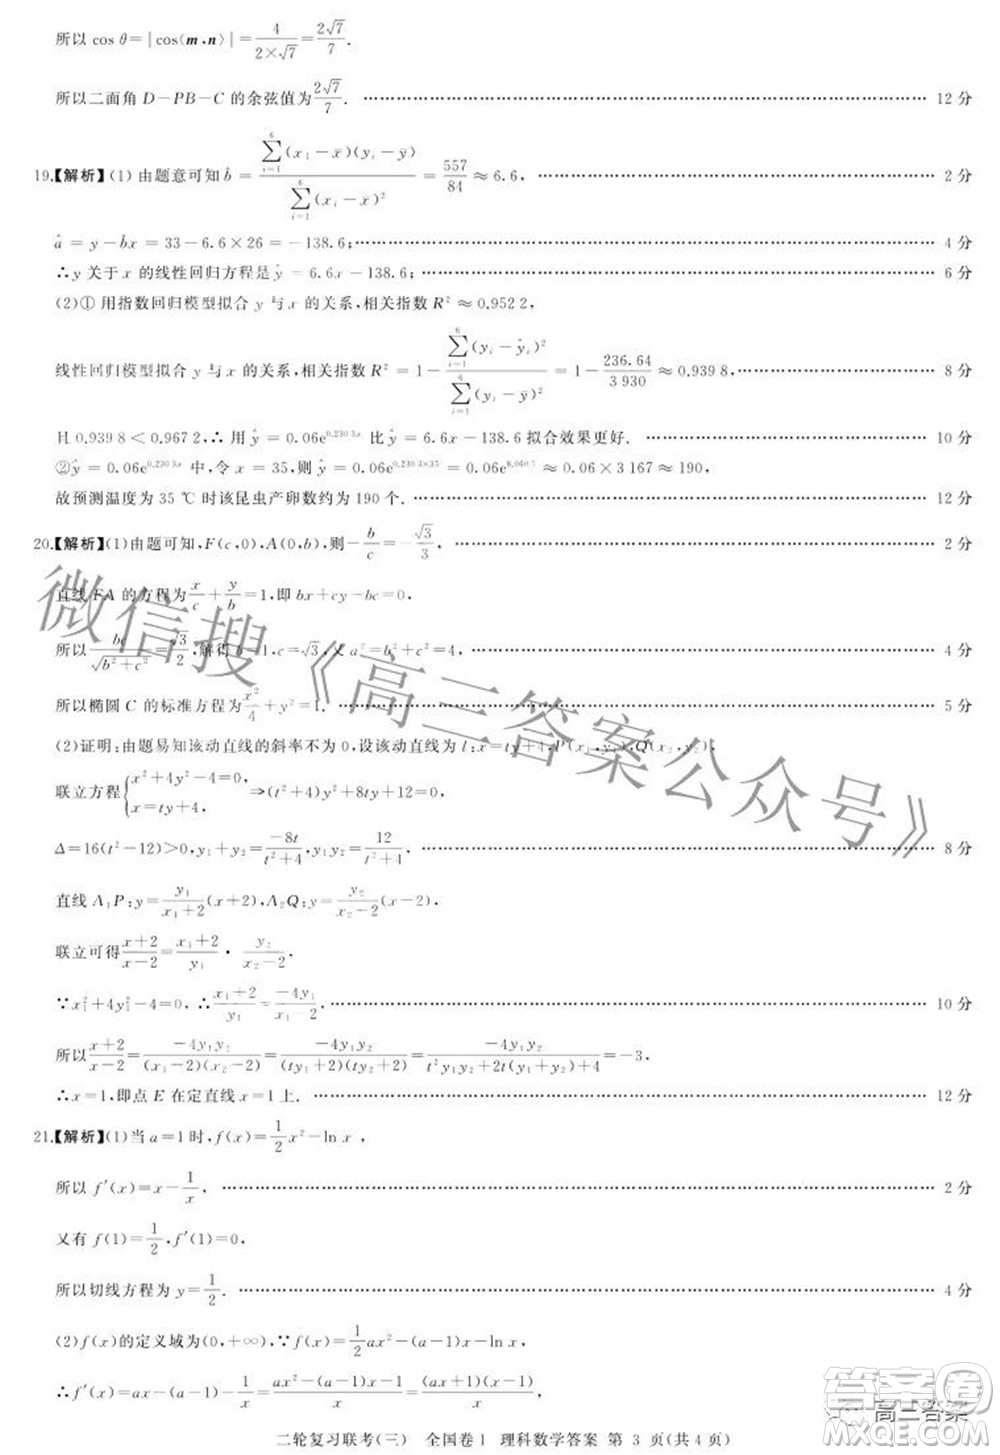 所以 cos θ = |cos⟨m,n⟩| = 4/(2×√7) = 2√7/7.
所以二面角 D-PB-C 的余弦值为 2√7/7. …… 12 分
19.【解析】(1) 由题意可知 b̂ = ∑_{i=1}^{6}(x_i-x̄)(y_i-ȳ) / ∑_{i=1}^{6}(x_i-x̄)² = 557/84 ≈ 6.6, …… 2 分
â = y - b̂x = 33-6.6×26 = -138.6; …… 4 分
∴ y 关于 x 的线性回归方程是 ŷ = 6.6x-138.6; …… 6 分
(2)① 用指数回归模型拟合 y 与 x 的关系,相关指数 R² ≈ 0.952 2,
线性回归模型拟合 y 与 x 的关系,相关指数 R² = 1 - ∑_{i=1}^{6}(y_i-ŷ_i)² / ∑_{i=1}^{6}(y_i-ȳ)² = 1 - 236.64/3 930 ≈ 0.939 8, …… 8 分
且 0.939 8 < 0.967 2, ∴ 用 ŷ = 0.06e^{0.230 3x} 比 ŷ = 6.6x-138.6 拟合效果更好. …… 10 分
② ŷ = 0.06e^{0.230 3x} 中,令 x = 35,则 ŷ = 0.06e^{0.230 3×35} = 0.06e^{8.060 5} ≈ 0.06×3 167 ≈ 190,
故预测温度为 35 ℃时该昆虫产卵数约为 190 个. …… 12 分
20.【解析】(1)由题可知,F(c,0),A(0,b),则 -b/c = -√3/3, …… 2 分
直线 FA 的方程为 x/c + y/b = 1,即 bx+cy-bc=0,
所以 bc/√(b²+c²) = √3/2,解得 b=1,c=√3,又 a²=b²+c²=4, …… 4 分
所以椭圆 C 的标准方程为 x²/4 + y² = 1. …… 5 分
(2)证明:由题易知该动直线的斜率不为 0,设该动直线为 l:x=ty+4,P(x₁,y₁),Q(x₂,y₂),
联立方程 {x²+4y²-4=0, x=ty+4, ⇒(t²+4)y²+8ty+12=0,
Δ=16(t²-12)>0,y₁+y₂ = -8t/(t²+4),y₁y₂ = 12/(t²+4). …… 8 分
直线 A₁P:y = y₁/(x₁+2)(x+2),A₂Q:y = y₂/(x₂-2)(x-2),
联立可得 (x+2)/(x-2) = (x₁+2)/y₁ · y₂/(x₂-2).
∵ x₁²+4y₁²-4=0, ∴ (x₁+2)/y₁ = -4y₁/(x₁-2). …… 10 分
所以 (x+2)/(x-2) = -4y₁y₂/((x₁-2)(x₂-2)) = -4y₁y₂/((ty₁+2)(ty₂+2)) = -4y₁y₂/(t²y₁y₂+2t(y₁+y₂)+4) = -3,
∴ x=1,即点 E 在定直线 x=1 上. …… 12 分
21.【解析】(1)当 a=1 时,f(x) = 1/2 x² - ln x,
所以 f'(x) = x - 1/x, …… 2 分
又有 f(1) = 1/2,f'(1)=0,
所以切线方程为 y = 1/2. …… 4 分
(2)f(x)的定义域为(0,+∞),∵ f(x) = 1/2 ax² - (a-1)x - ln x,
∴ f'(x) = ax-(a-1)-1/x = (ax²-(a-1)x-1)/x = (ax+1)(x-1)/x,
二轮复习联考(三) 全国卷1 理科数学答案 第 3 页(共 4 页)
微信搜《高三答案公众号》
答案圈
高三答案